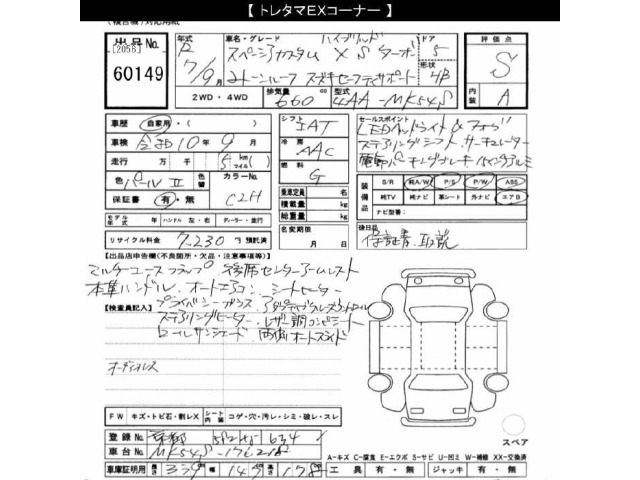 【 トレタマEXコーナー 】
出品No. [2056] 60149
年式 R 7/9月
車名・グレード ハイブリッド
スペーシアカスタム X S ターボ
2トーンルーフ スズキセーフティサポート
ドア 5
形状 4B
2WD・4WD 排気量 660cc 型式 4AA-MK54S
評価点 S
内装 A
車歴 自家用・( )
車検 令和10年9月
走行 万 千 5 km(マイル)
色 パールⅡ 色替 カラーNo. C2H
保証書 有・無
モデル年式 年 ハンドル 左・右 ディーラー・並行
リサイクル料金 7,230円 預託済
シフト IAT
冷房 AAC
燃料 G
乗車定員 名
積載量 kg
総重量 kg
名変期限 月 日
セールスポイント
LEDヘッドライト&フォグ
ステアリングシフト サーキュレーター
電動パーキングブレーキ
装備品 S/R 純A/W P/S P/W ABS
純TV 純ナビ 革シート 外ナビ エアB
ナビ型番:
後日品
保証書、取説
【出品店申告欄(不良箇所・欠品・注意事項等)】
後席センターアームレスト
本革ハンドル、オートエアコン、シートヒーター
【検査員記入】
プライバシーガラス、アダプティブクルーズコントロール
ステアリングヒーター、レザー調コンビシート
ロールサンシェード 両側オートスライド
オーディオレス
FW キズ・トビ石・割レX シート内装 コゲ・穴・汚レ・シミ・破レ・スレ
登録No. 京都 582 634
車台No. MK54S-176218
車庫証明用 長さ 339 幅 147 高さ 178
スペア
A-キズ C-腐食 E-エクボ S-サビ U-凹ミ W-補修 XX-交換済
工具 有・無 ジャッキ 有・無